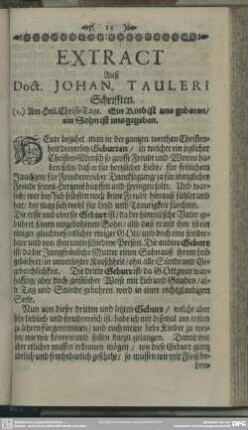 13
EXTRACT
Auß
Doct. JOHAN. TAULERI
Schrifften.
(1.) Am Heil. Christ-Tage. Ein Kind ist uns geboren/
ein Sohn ist uns gegeben.
HEute begehet man in der gantzen werthen Christen-
heit dreyerley Geburten / in welcher ein jeglicher
Christen-Mensch so grosse Freud und Wonne ha-
ben solte / daß er für hertzlicher Liebe / für frölichem
Jauchtzen / für Freudenreicher Dancksagung / zu für inniglicher
Freude seines Hertzens hüpffen und springen solte. Und war-
lich / wer bey sich selbsten noch keine Freude hierauß fühlet und
hat / der mag sich wohl für Leid und Traurigkeit fürchten.
Die erste und oberste Geburt ist / da der himmlische Vater ge-
bühret seinen eingebohrnen Sohn / also daß er mit ihm ist ein
einiger gleichwesentlicher ewiger GOtt / und doch eine sonder-
bahre und von ihm unterschiedene Person. Die andere Geburt
ist / da die Jungfräuliche Mutter einen Sohn auß ihrem Leib
gebohren / in unverletzter Keuschheit / ohn alle Sünde und
Gebrechlichkeit. Die dritte Geburt ist / da GOtt war-
hafftig / aber doch geistlicher Weise mit Lieb und Gnaden / al-
le Tag und Stunde gebohren wird in einer rechtgläubigen
Seele.
Nun von dieser dritten und letzten Geburt / welche aber
sehr lieblich und freudenreich ist / habe ich mit dißmal am ersten
zu lehren fürgenommen / und euch meine liebe Kinder zu wei-
sen / wie wir können und sollen darzu gelangen. Damit wir
aber etlicher massen erkennen mögen / wie diese Geburt gantz
lieblich und fruchtbarlich geschehe / so müssen wir mit Fleiß be-